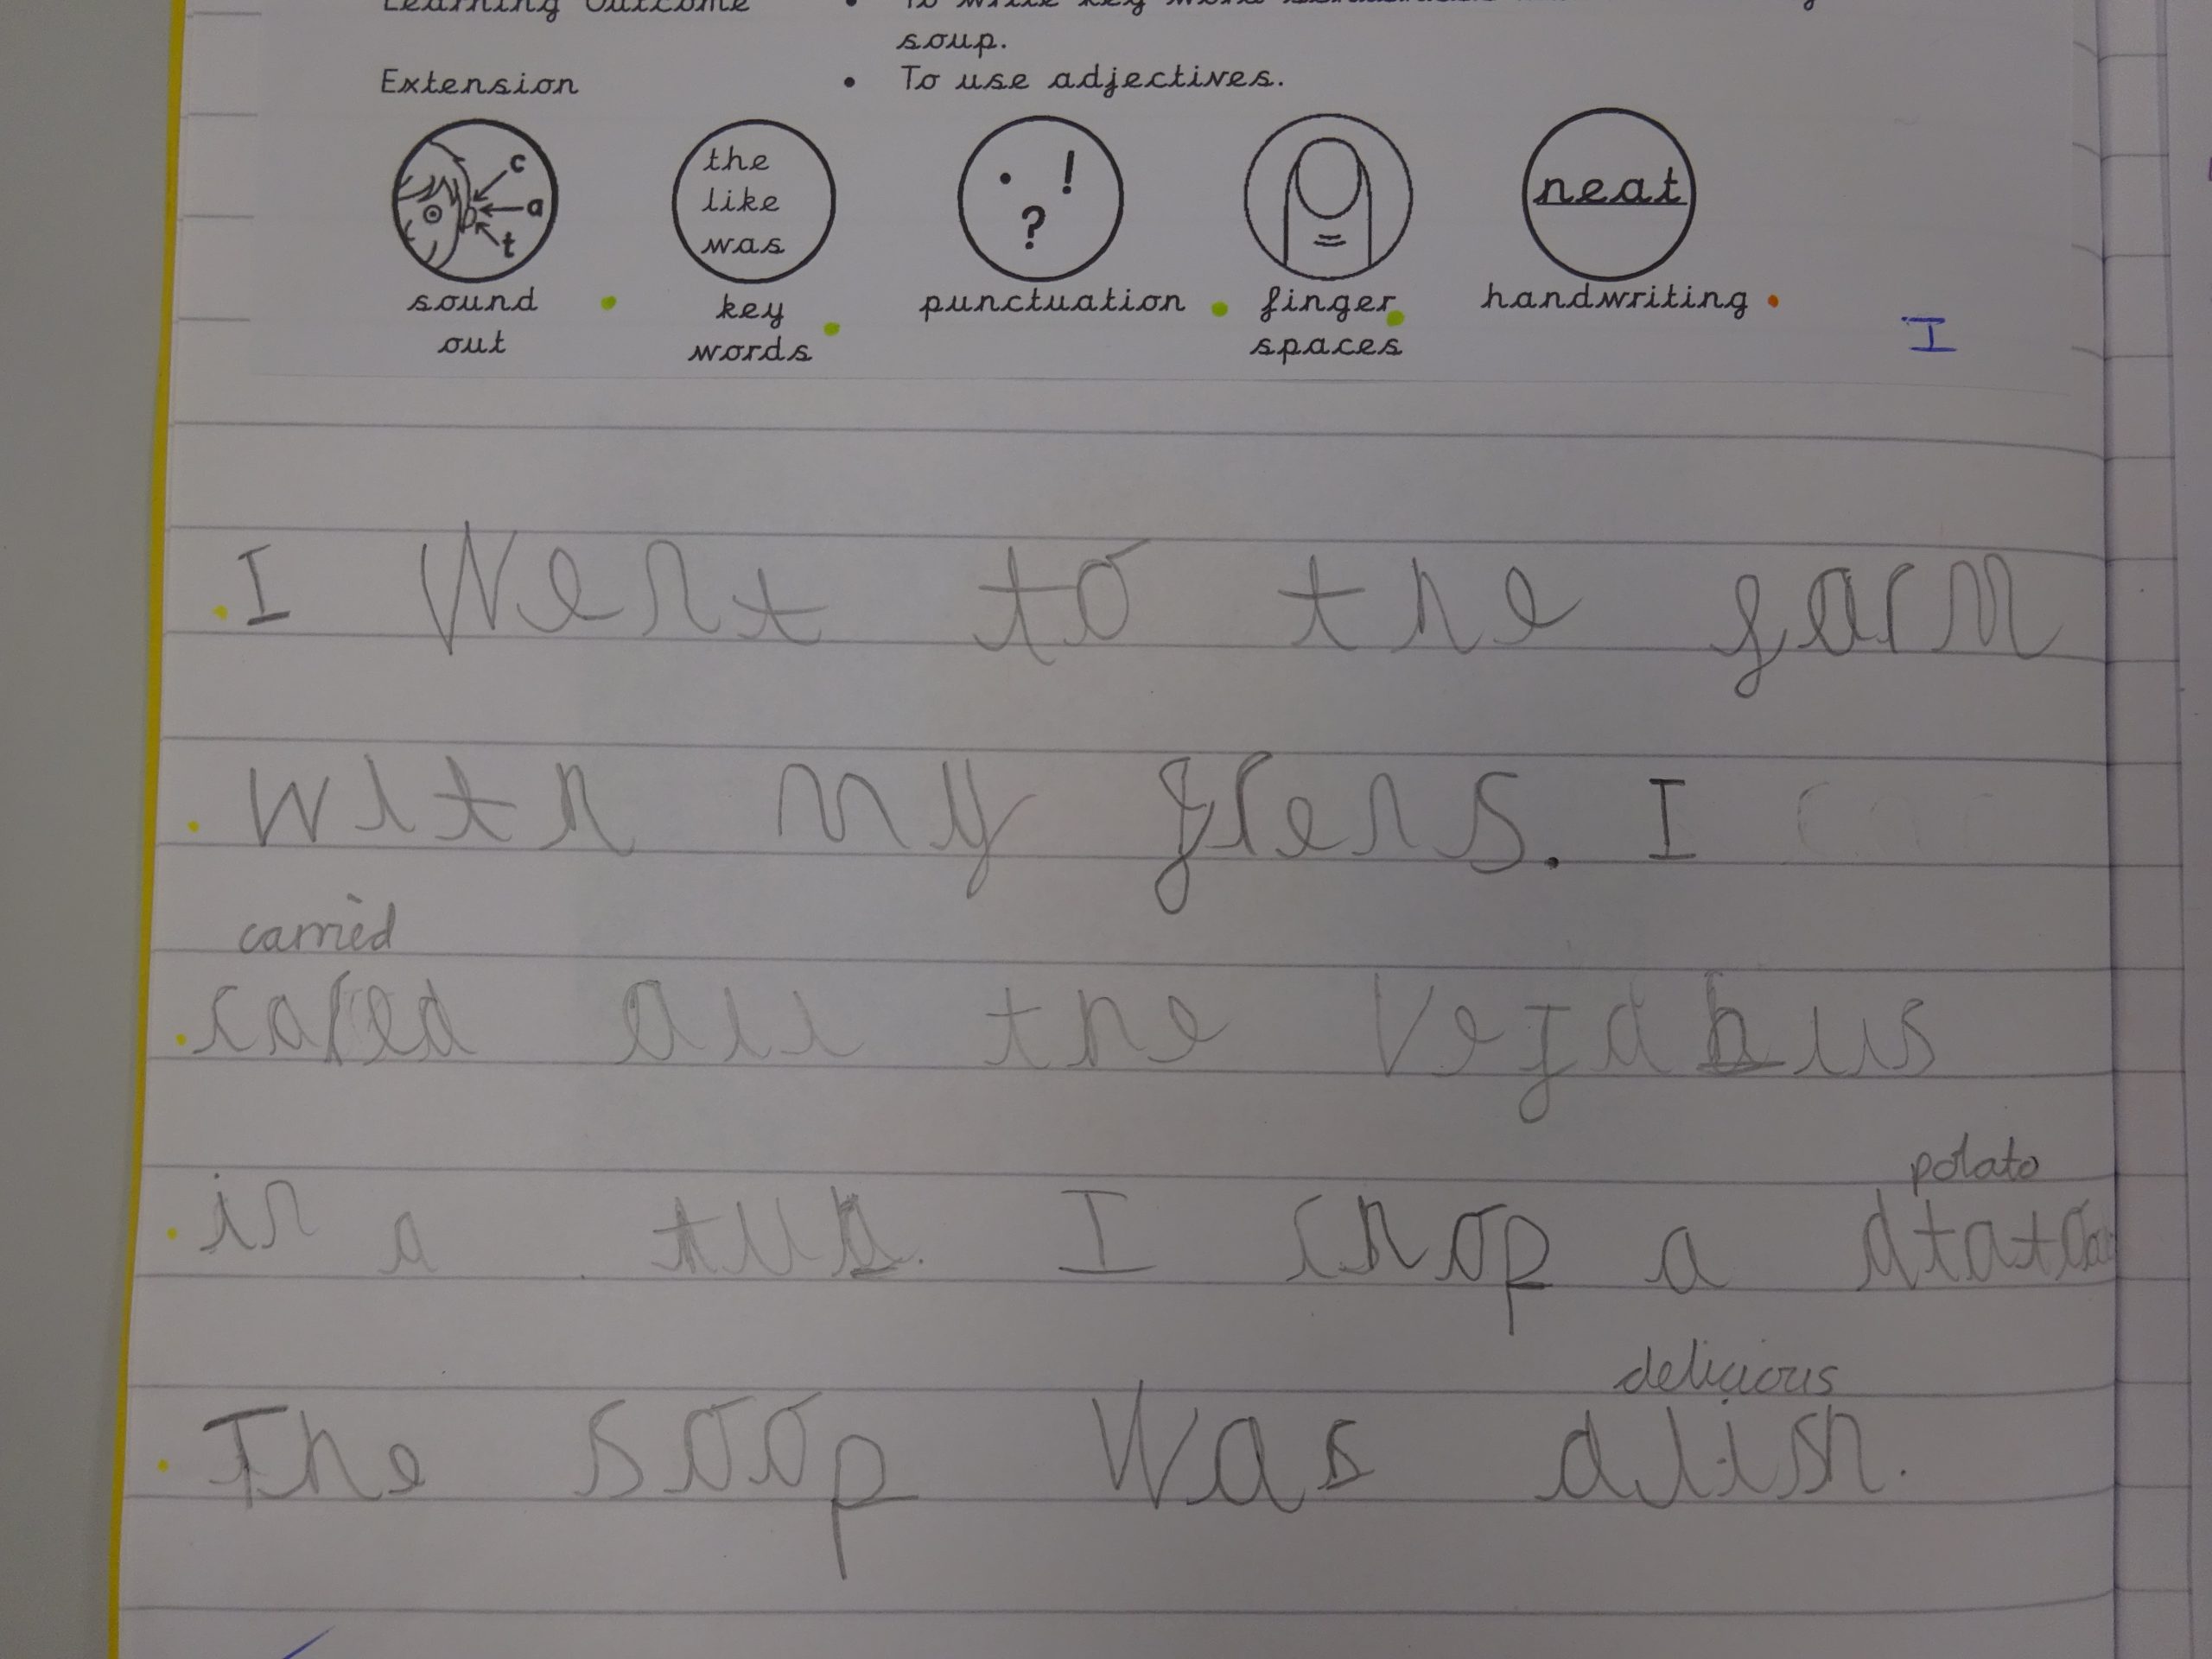 Learning Outcome
soup.
Extension • To use adjectives.
c
a
t
the
like
was
. !
?
neat
sound out
key words
punctuation
finger spaces
handwriting
I
I Went to the farm
with my frens. I
carried
cared all the Vegdbus
potato
in a tub. I chop a
delicious
The soop Was dlish.